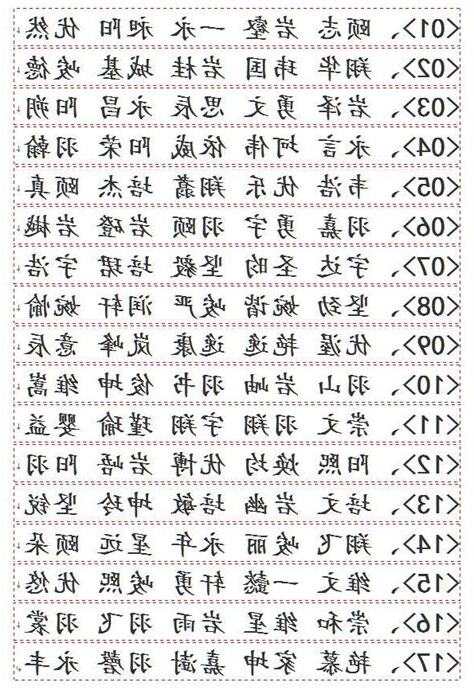 <01>、颐志 岩壑 一永 昶阳 优然
<02>、翔华 玮国 岩桂 城基 峻德
<03>、岩泽 勇文 思辰 永昌 阳朔
<04>、永言 珂伟 依威 阳荣 羽翰
<05>、韦浩 优乐 翔翥 培杰 颐真
<06>、羽嘉 勇宇 羽颐 岩磴 岩樾
<07>、宇达 圣昀 坚毅 培珺 宇浩
<08>、坚劲 婉谐 峻严 润轩 婉愉
<09>、优渥 艳逸 逸康 岚峰 意辰
<10>、羽山 岩岫 羽书 俊坤 维嵩
<11>、崇文 羽翔 宇翔 瑾瑜 婴益
<12>、阳熙 焕均 优博 岩峿 阳羽
<13>、培文 岩幽 培敏 坤玲 坚锐
<14>、翔飞 峻丽 永年 星远 颐朵
<15>、维文 一懿 轩勇 峻熙 优悠
<16>、崇和 维星 岩雨 羽飞 羽裳
<17>、艳慕 家坤 嘉澍 羽磬 永丰